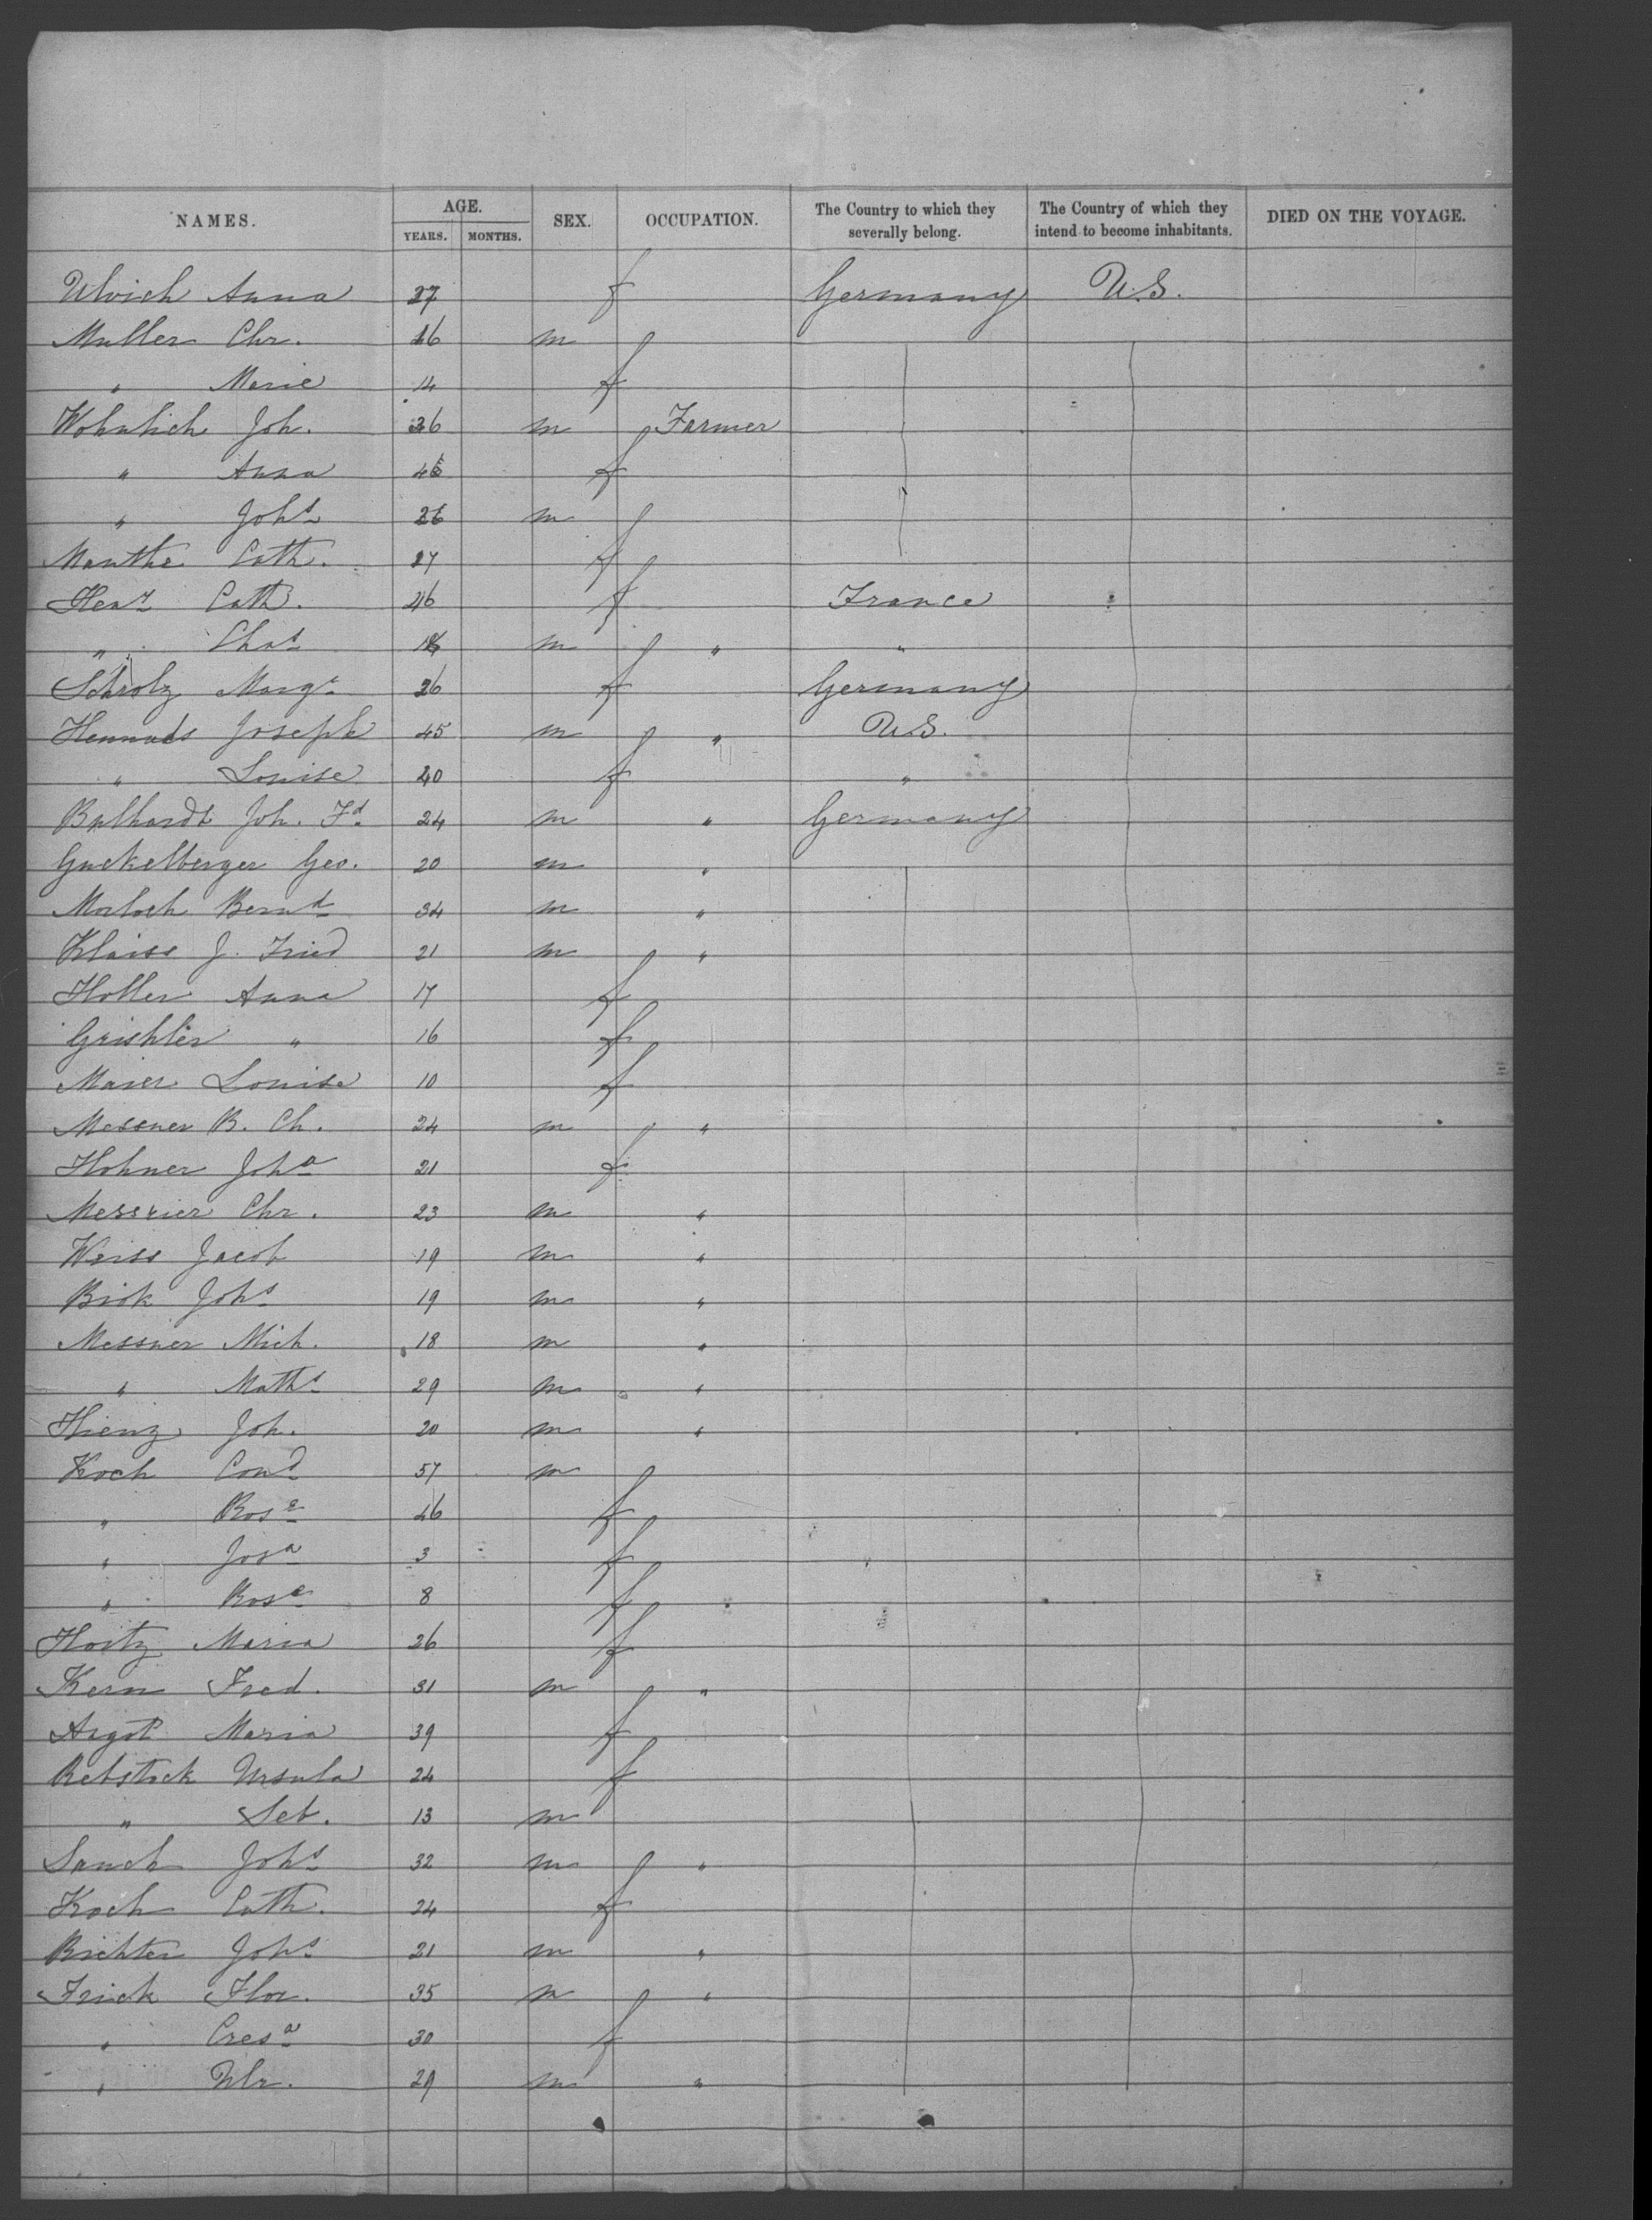 NAMES. AGE. SEX. OCCUPATION. The Country to which they severally belong. The Country of which they intend to become inhabitants. DIED ON THE VOYAGE.
YEARS. MONTHS.
Ulrich Anna 27 f Germany U.S.
Muller Chr. 16 m
" Marie 14 f
Wohnlich Joh. 26 m Farmer
" Anna f
" Johs 26 m
Manthe Cath. 27 f
Cath. 46 f France
" Chas m " "
Scholz Margt 26 f Germany
Joseph 45 m " U.S.
" Louise 40 f "
Joh. Fd 24 m " Germany
Guckelberger Geo. 20 m "
Morloch Bernd 34 m "
Klaiss J. Fried 21 m "
Holler Anna 17 f
" 16 f
Maier Louise 10 f
Messner B. Ch. 24 m "
Hohner Joha 21 f
Messner Chr. 23 m "
Weiss Jacob 19 m "
Birk Johs 19 m "
Messner Mich. 18 m "
" Maths 29 m "
Hienz Joh. 20 m "
Koch Cond 57 m
" Rose 46 f
" Josa 3 f
" Rose 8 f
Maria 26 f
Kern Fred. 31 m "
Argot Maria 39 f
Rebstock Ursula 24 f
" Seb. 13 m
Sauch Johs 32 m "
Koch Cath. 24 f
Richter Johs 21 m "
Frick Flor. 35 m "
" Cresa 30 f
" Ulr. 29 m "